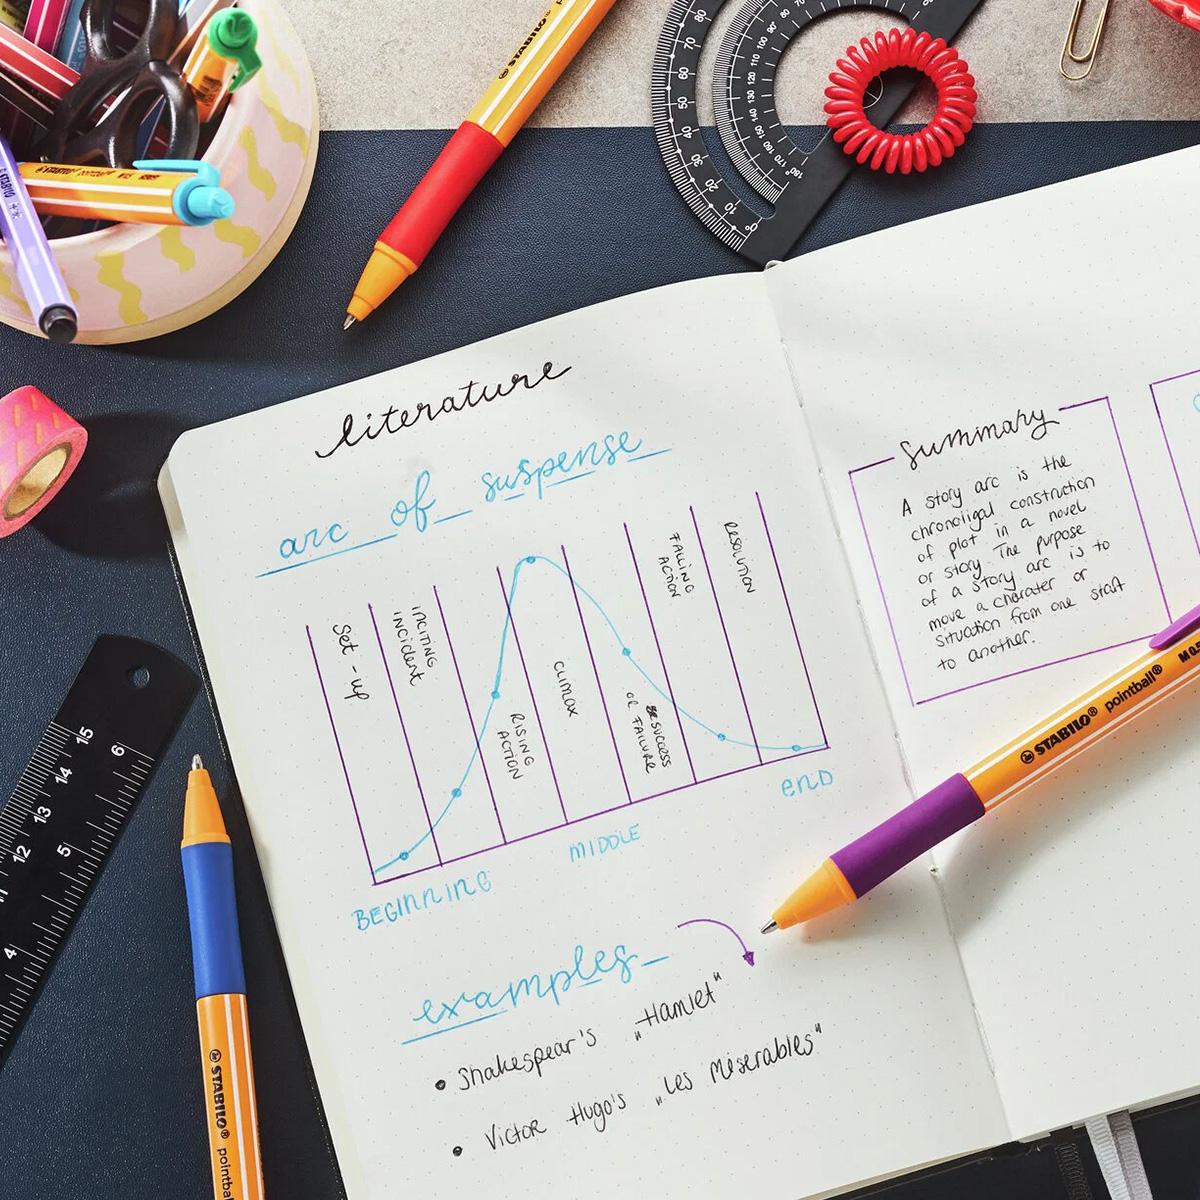 STABILO
STABILO pointball
literature
arc of suspense
Set-up
INCITING
INCIDENT
RISING
ACTION
CLIMAX
SUCCESS
OR FAILURE
FALLING
ACTION
RESOLUTION
BEGINNING
MIDDLE
END
examples
• Shakespear's „Hamlet"
• Victor Hugo's „Les Miserables"
summary
A story arc is the
chronoligal construction
of plot in a novel
or story. The purpose
of a story arc is to
move a charater or
situation from one start
to another.
STABILO pointball M 0.5
STABILO pointball
15
14
13
12
6
5
4
80
70
60
50
40
30
20
10
0°
80
90
100
110
120
130
140
150
160
170
180°